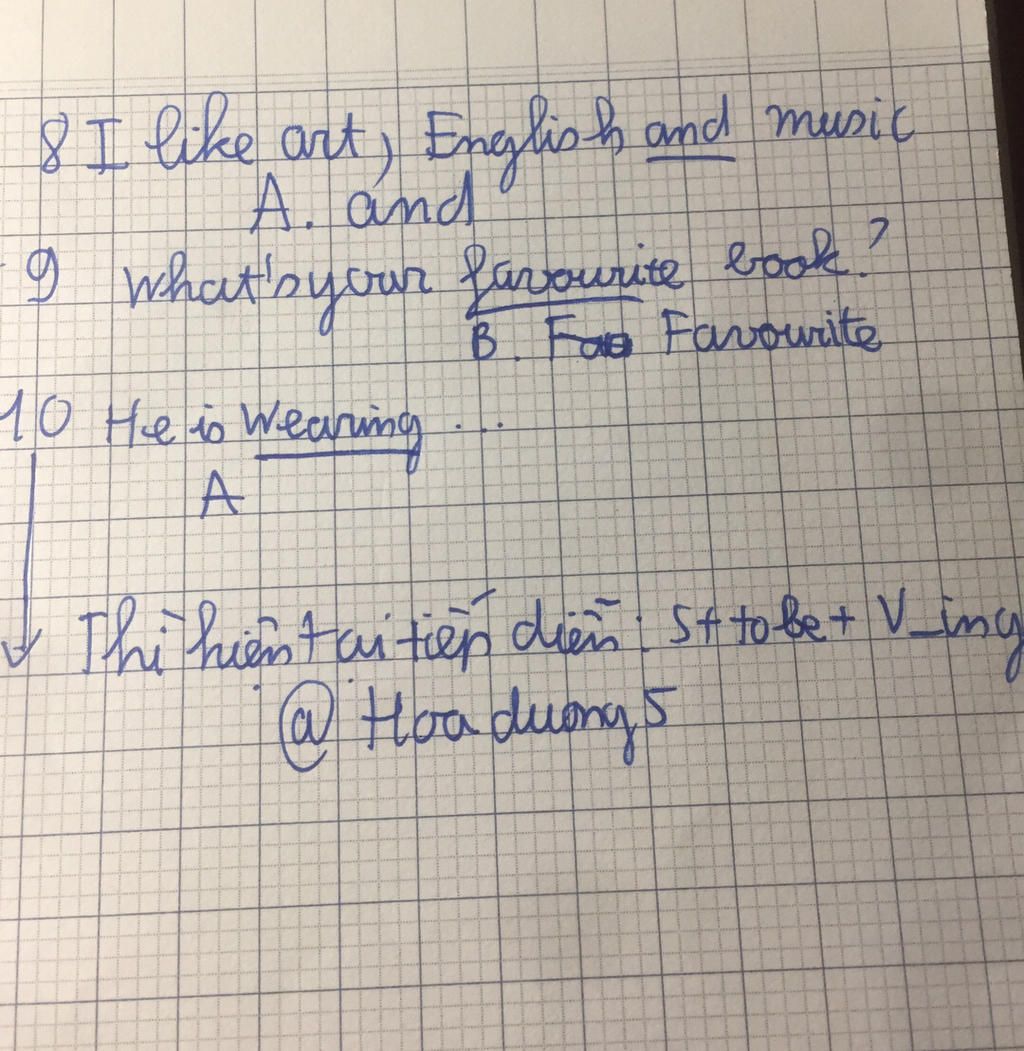 8 I like art, English and music
A. and
9 What's your favourite book?
B. Favourite
10 He is Wearing ...
A
Thì hiện tại tiếp diễn: S + to be + V_ing
@ Hoaduong5